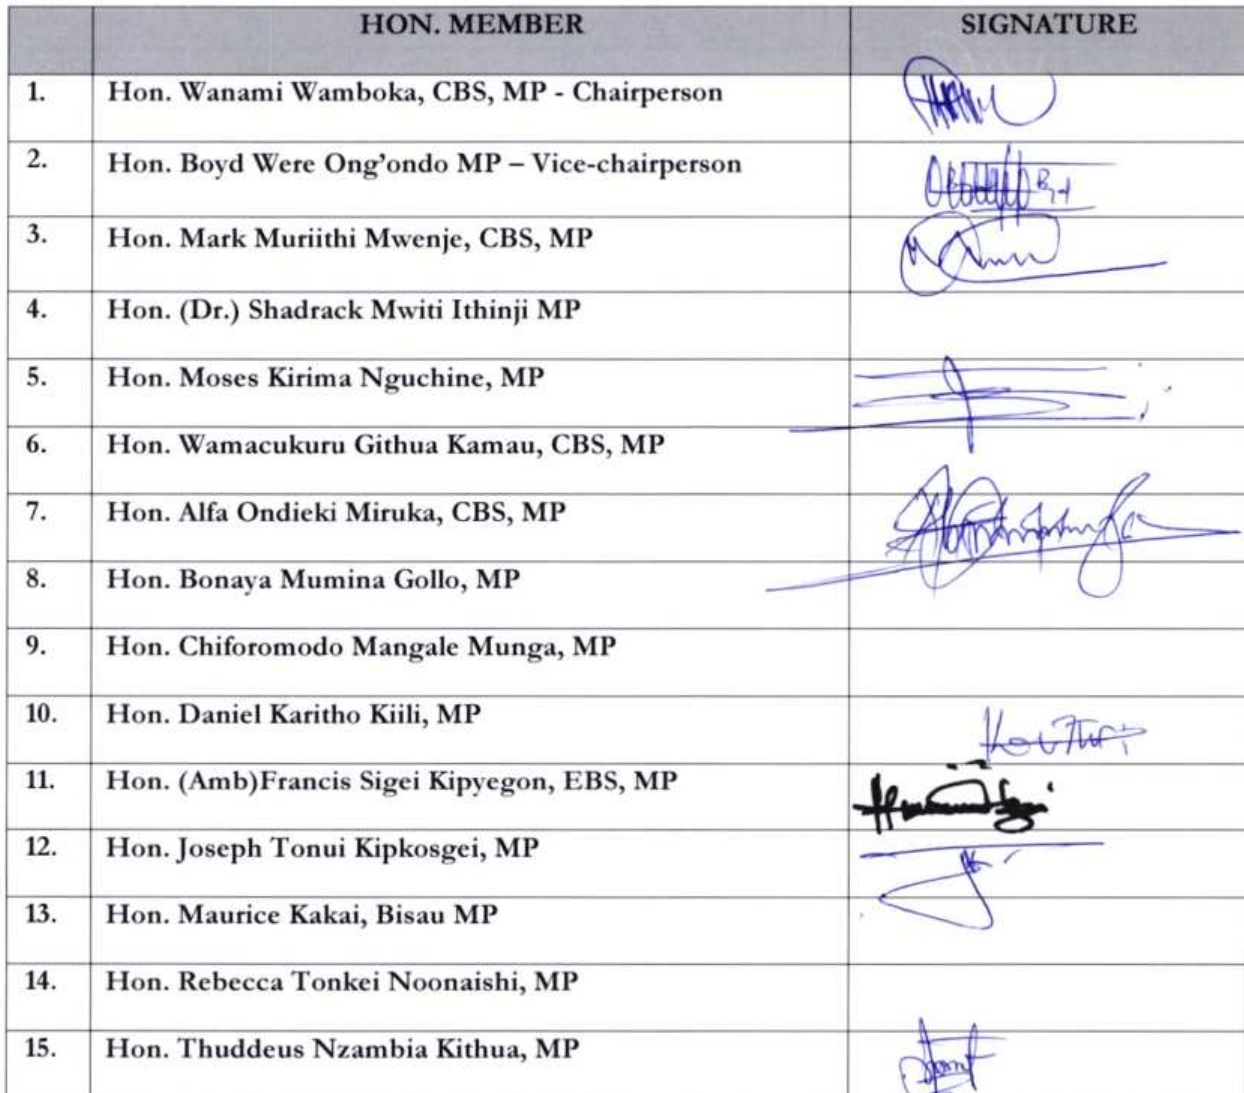 HON. MEMBER SIGNATURE
1. Hon. Wanami Wamboka, CBS, MP - Chairperson
2. Hon. Boyd Were Ong’ondo MP – Vice-chairperson
3. Hon. Mark Muriithi Mwenje, CBS, MP
4. Hon. (Dr.) Shadrack Mwiti Ithinji MP
5. Hon. Moses Kirima Nguchine, MP
6. Hon. Wamacukuru Githua Kamau, CBS, MP
7. Hon. Alfa Ondieki Miruka, CBS, MP
8. Hon. Bonaya Mumina Gollo, MP
9. Hon. Chiforomodo Mangale Munga, MP
10. Hon. Daniel Karitho Kiili, MP
11. Hon. (Amb)Francis Sigei Kipyegon, EBS, MP
12. Hon. Joseph Tonui Kipkosgei, MP
13. Hon. Maurice Kakai, Bisau MP
14. Hon. Rebecca Tonkei Noonaishi, MP
15. Hon. Thuddeus Nzambia Kithua, MP